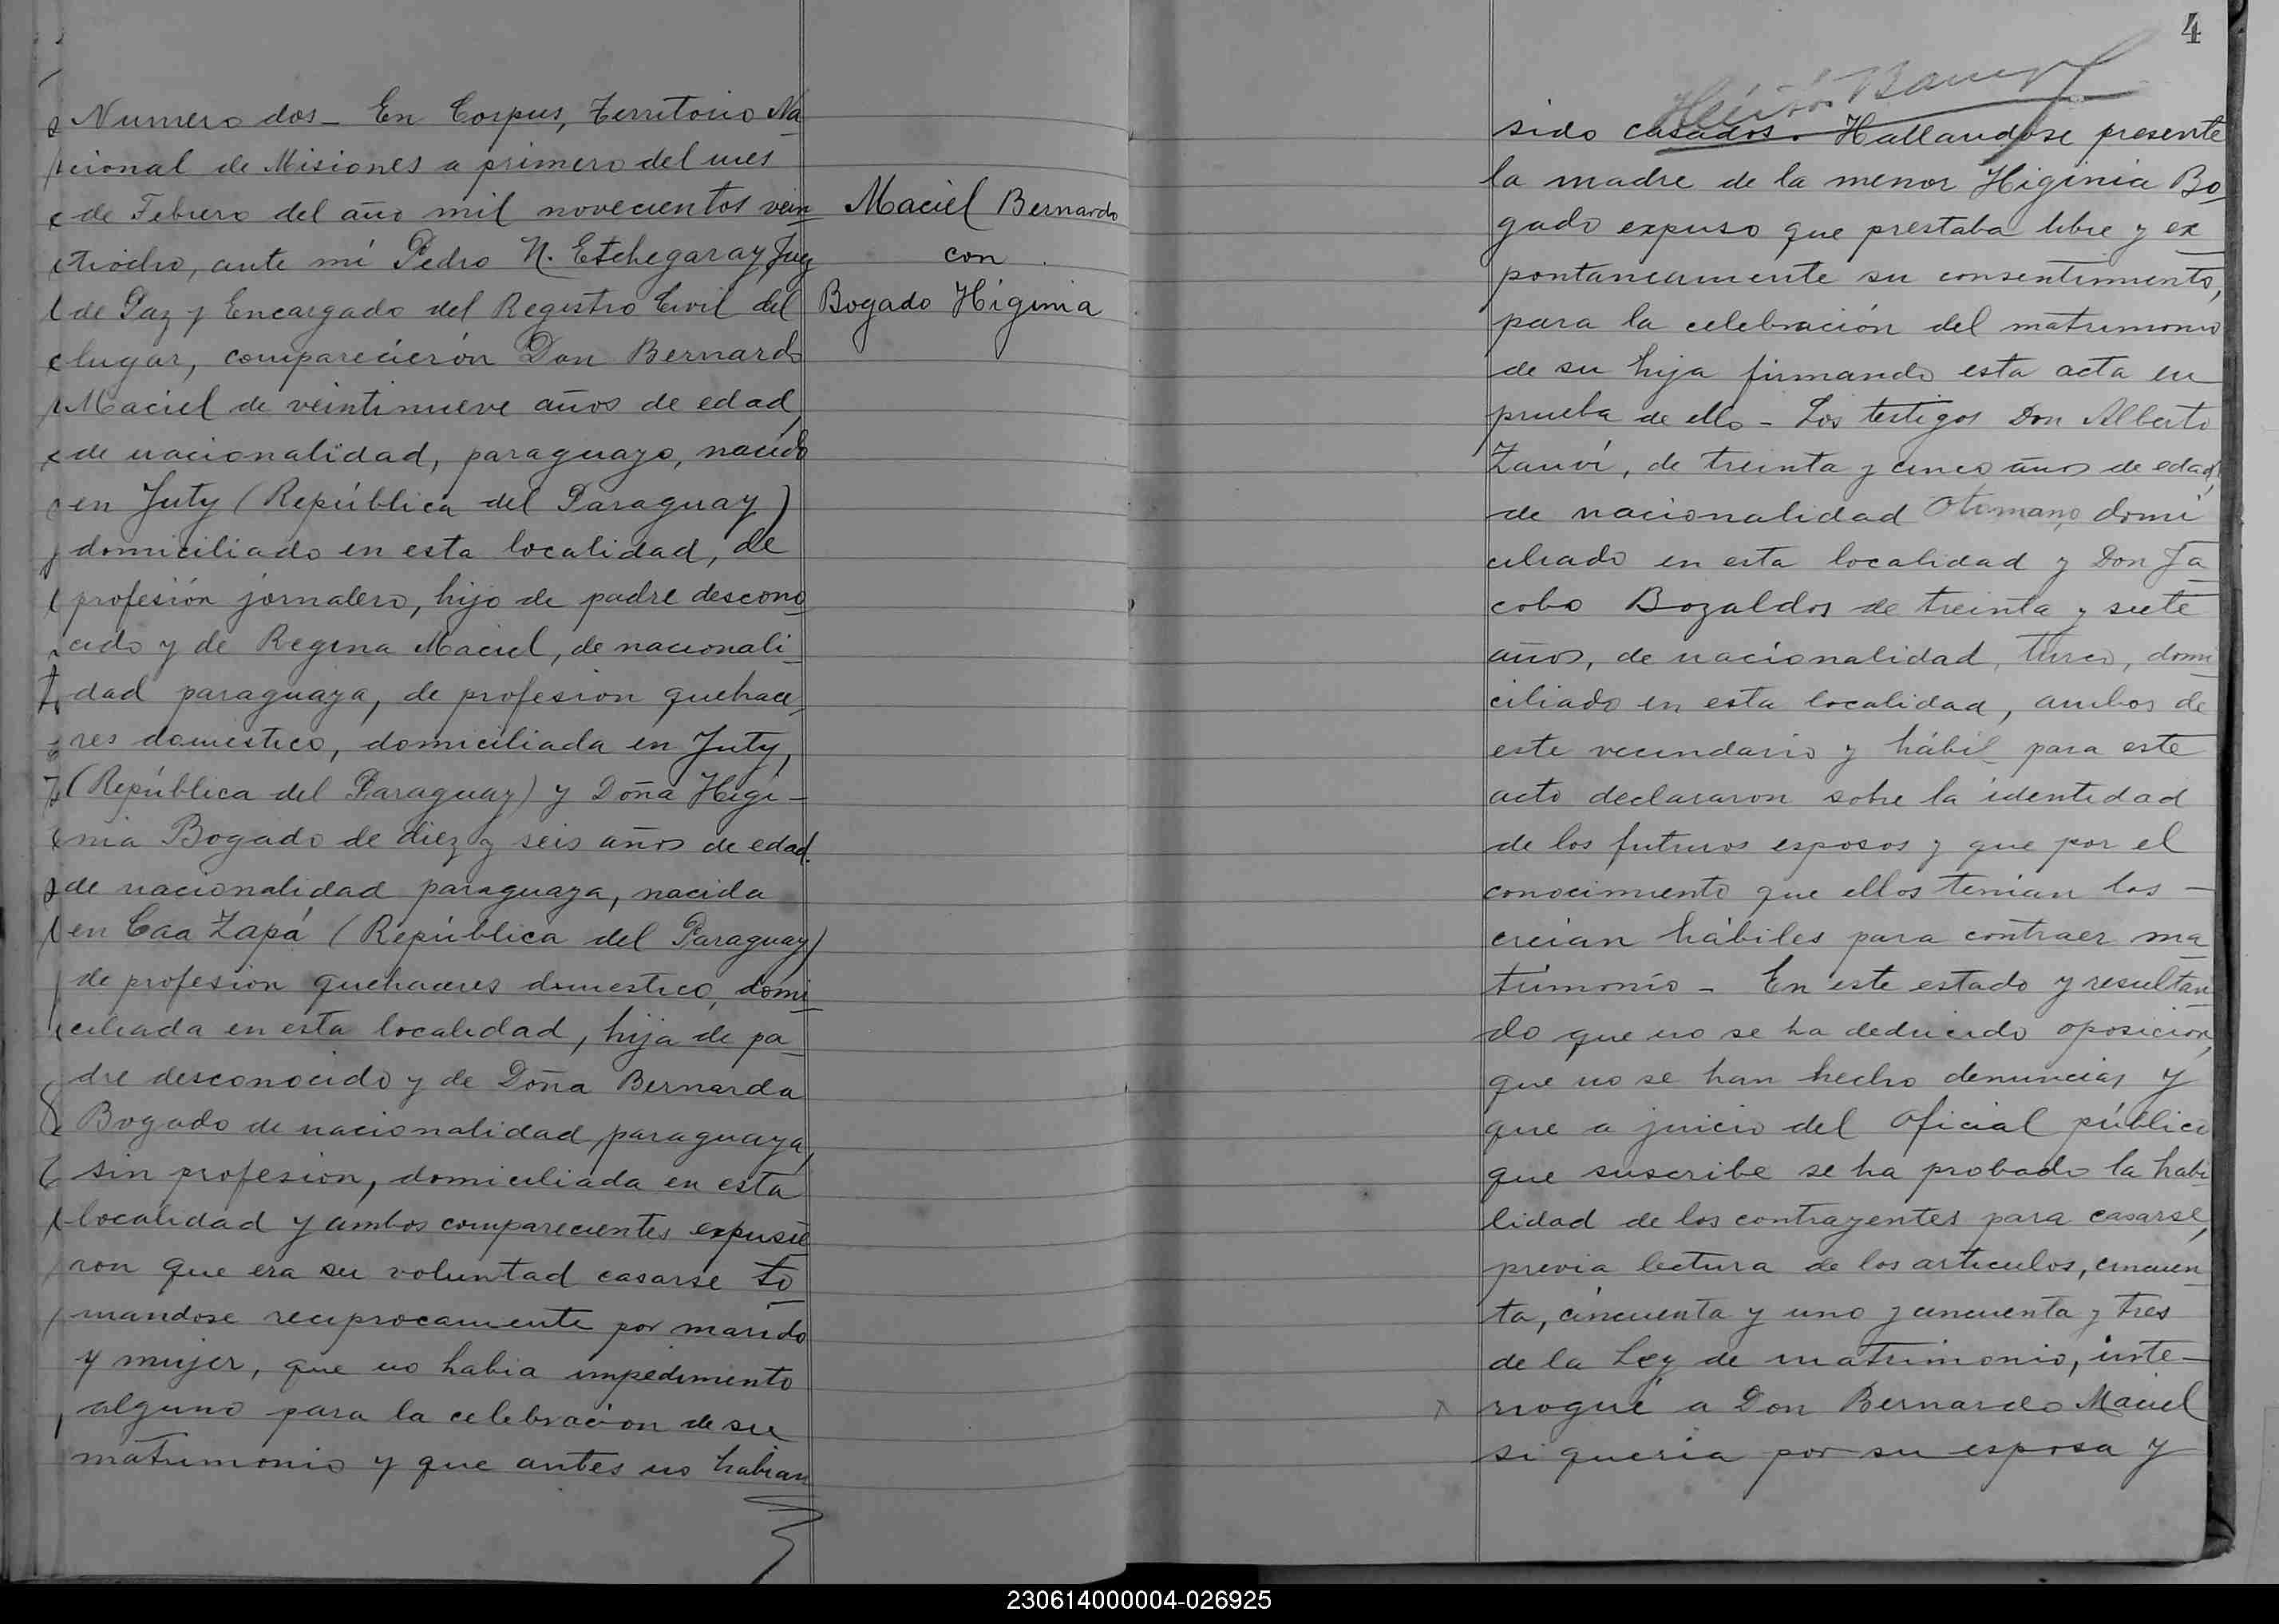 Numero dos - En Corpus, Territorio Na
cional de Misiones a primero del mes
de Febrero del año mil novecientos vein
tiocho, ante mí Pedro N. Etchegaray Juez
de Paz y Encargado del Registro Civil del
lugar, comparecierón Don Bernardo
Maciel de veintinueve años de edad,
de nacionalidad, paraguayo, nacido
en Juty (República del Paraguay)
domiciliado en esta localidad, de
profesión jornalero, hijo de padre descono
cido y de Regina Maciel, de nacionali
dad paraguaya, de profesion quehace
res domestico, domiciliada en Juty,
(República del Paraguay) y Doña Higi-
nia Bogado de diez y seis años de edad.
de nacionalidad paraguaya, nacida
en Caa Zapá (República del Paraguay)
de profesion quehaceres domestico, domi
ciliada en esta localidad, hija de pa
dre desconocido y de Doña Bernarda
Bogado de nacionalidad paraguaya,
sin profesion, domiciliada en esta
localidad y ambos comparecientes expusie
ron que era su voluntad casarse to
mandose reciprocamente por marido
y mujer, que no habia impedimento
alguno para la celebracion de su
matrimonio y que antes no habian
Maciel Bernardo
con
Bogado Higinia
4
sido casados. Hallandose presente
la madre de la menor Higinia Bo
gado expuso que prestaba libre y ex
pontaneamente su consentimiento,
para la celebración del matrimonio
de su hija firmando esta acta en
prueba de ello - Los testigos Don Alberto
Zauví, de treinta y cinco años de edad,
de nacionalidad Otomano, domi
ciliado en esta localidad y Don Ja
cobo Bozaldos de treinta y siete
años, de nacionalidad, turco, domi
ciliado en esta localidad, ambos de
este vecindario y hábil para este
acto declararon sobre la identidad
de los futuros esposos y que por el
conocimiento que ellos tenian los -
creian hábiles para contraer ma
trimonio - En este estado y resultan
do que no se ha deducido oposicion,
que no se han hecho denuncias y
que a juicio del Oficial público
que suscribe se ha probado la habi
lidad de los contrayentes para casarse,
previa lectura de los articulos, cincuen
ta, cincuenta y uno y cincuenta y tres
de la Ley de matrimonio, inte-
rrogué a Don Bernardo Maciel
si queria por su esposa y
230614000004-026925